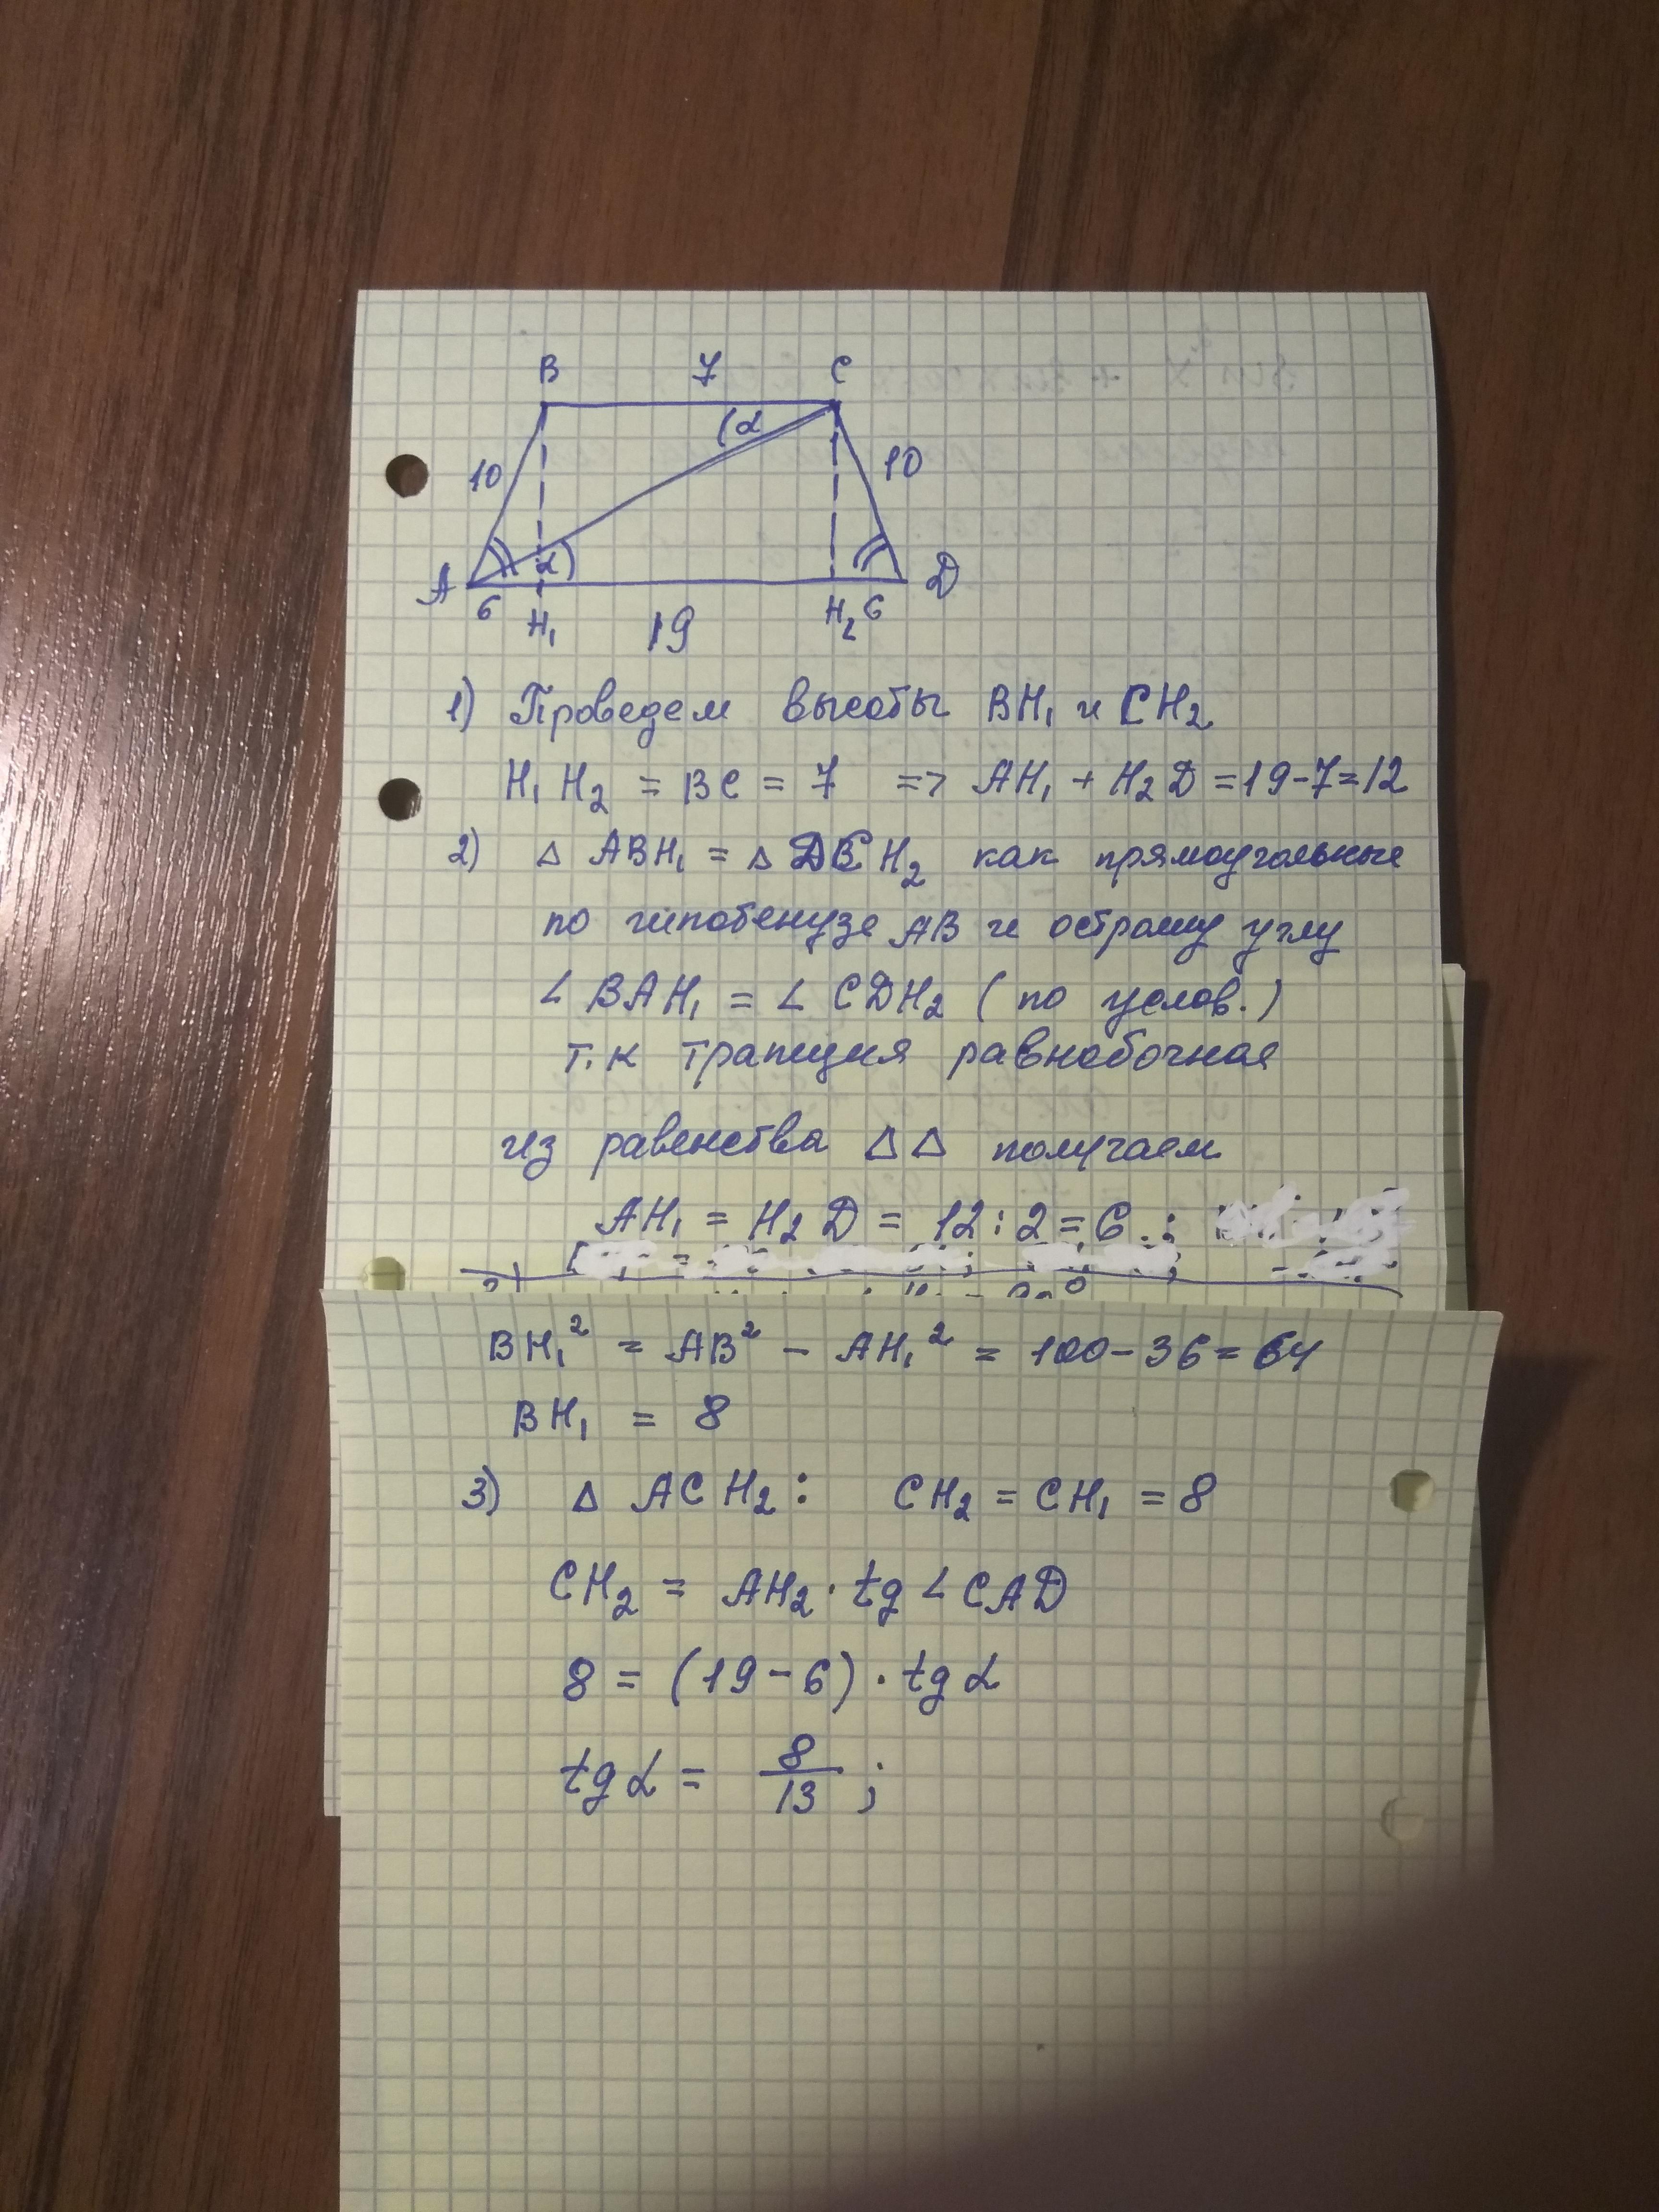 B 7 C
(α
10 10
α)
A D
6 H₁ 19 H₂ 6
1) Проведем высоты BH₁ и CH₂
H₁H₂ = BC = 7 => AH₁ + H₂D = 19-7=12
2) Δ ABH₁ = Δ DCH₂ как прямоугольные
по гипотенузе AB и острому углу
∠ BAH₁ = ∠ CDH₂ (по услов.)
т.к трапиция равнобочная
из равенства ΔΔ получаем
AH₁ = H₂D = 12:2=6;
BH₁² = AB² - AH₁² = 100-36=64
BH₁ = 8
3) Δ ACH₂: CH₂ = CH₁ = 8
CH₂ = AH₂ · tg ∠ CAD
8 = (19-6) · tg α
tg α = 8/13 ;